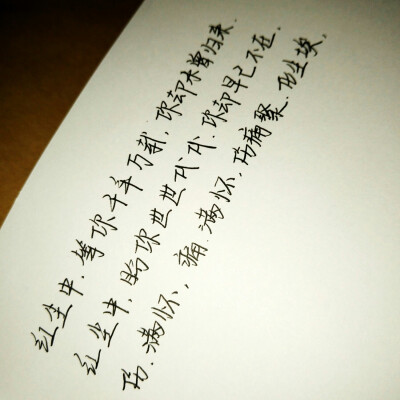 红尘中，等你千年万载，你却未曾归来.
红尘中，盼你世世代代，你却早已不在.
伤.满怀，痛.满怀，伤痛聚.形尘埃.